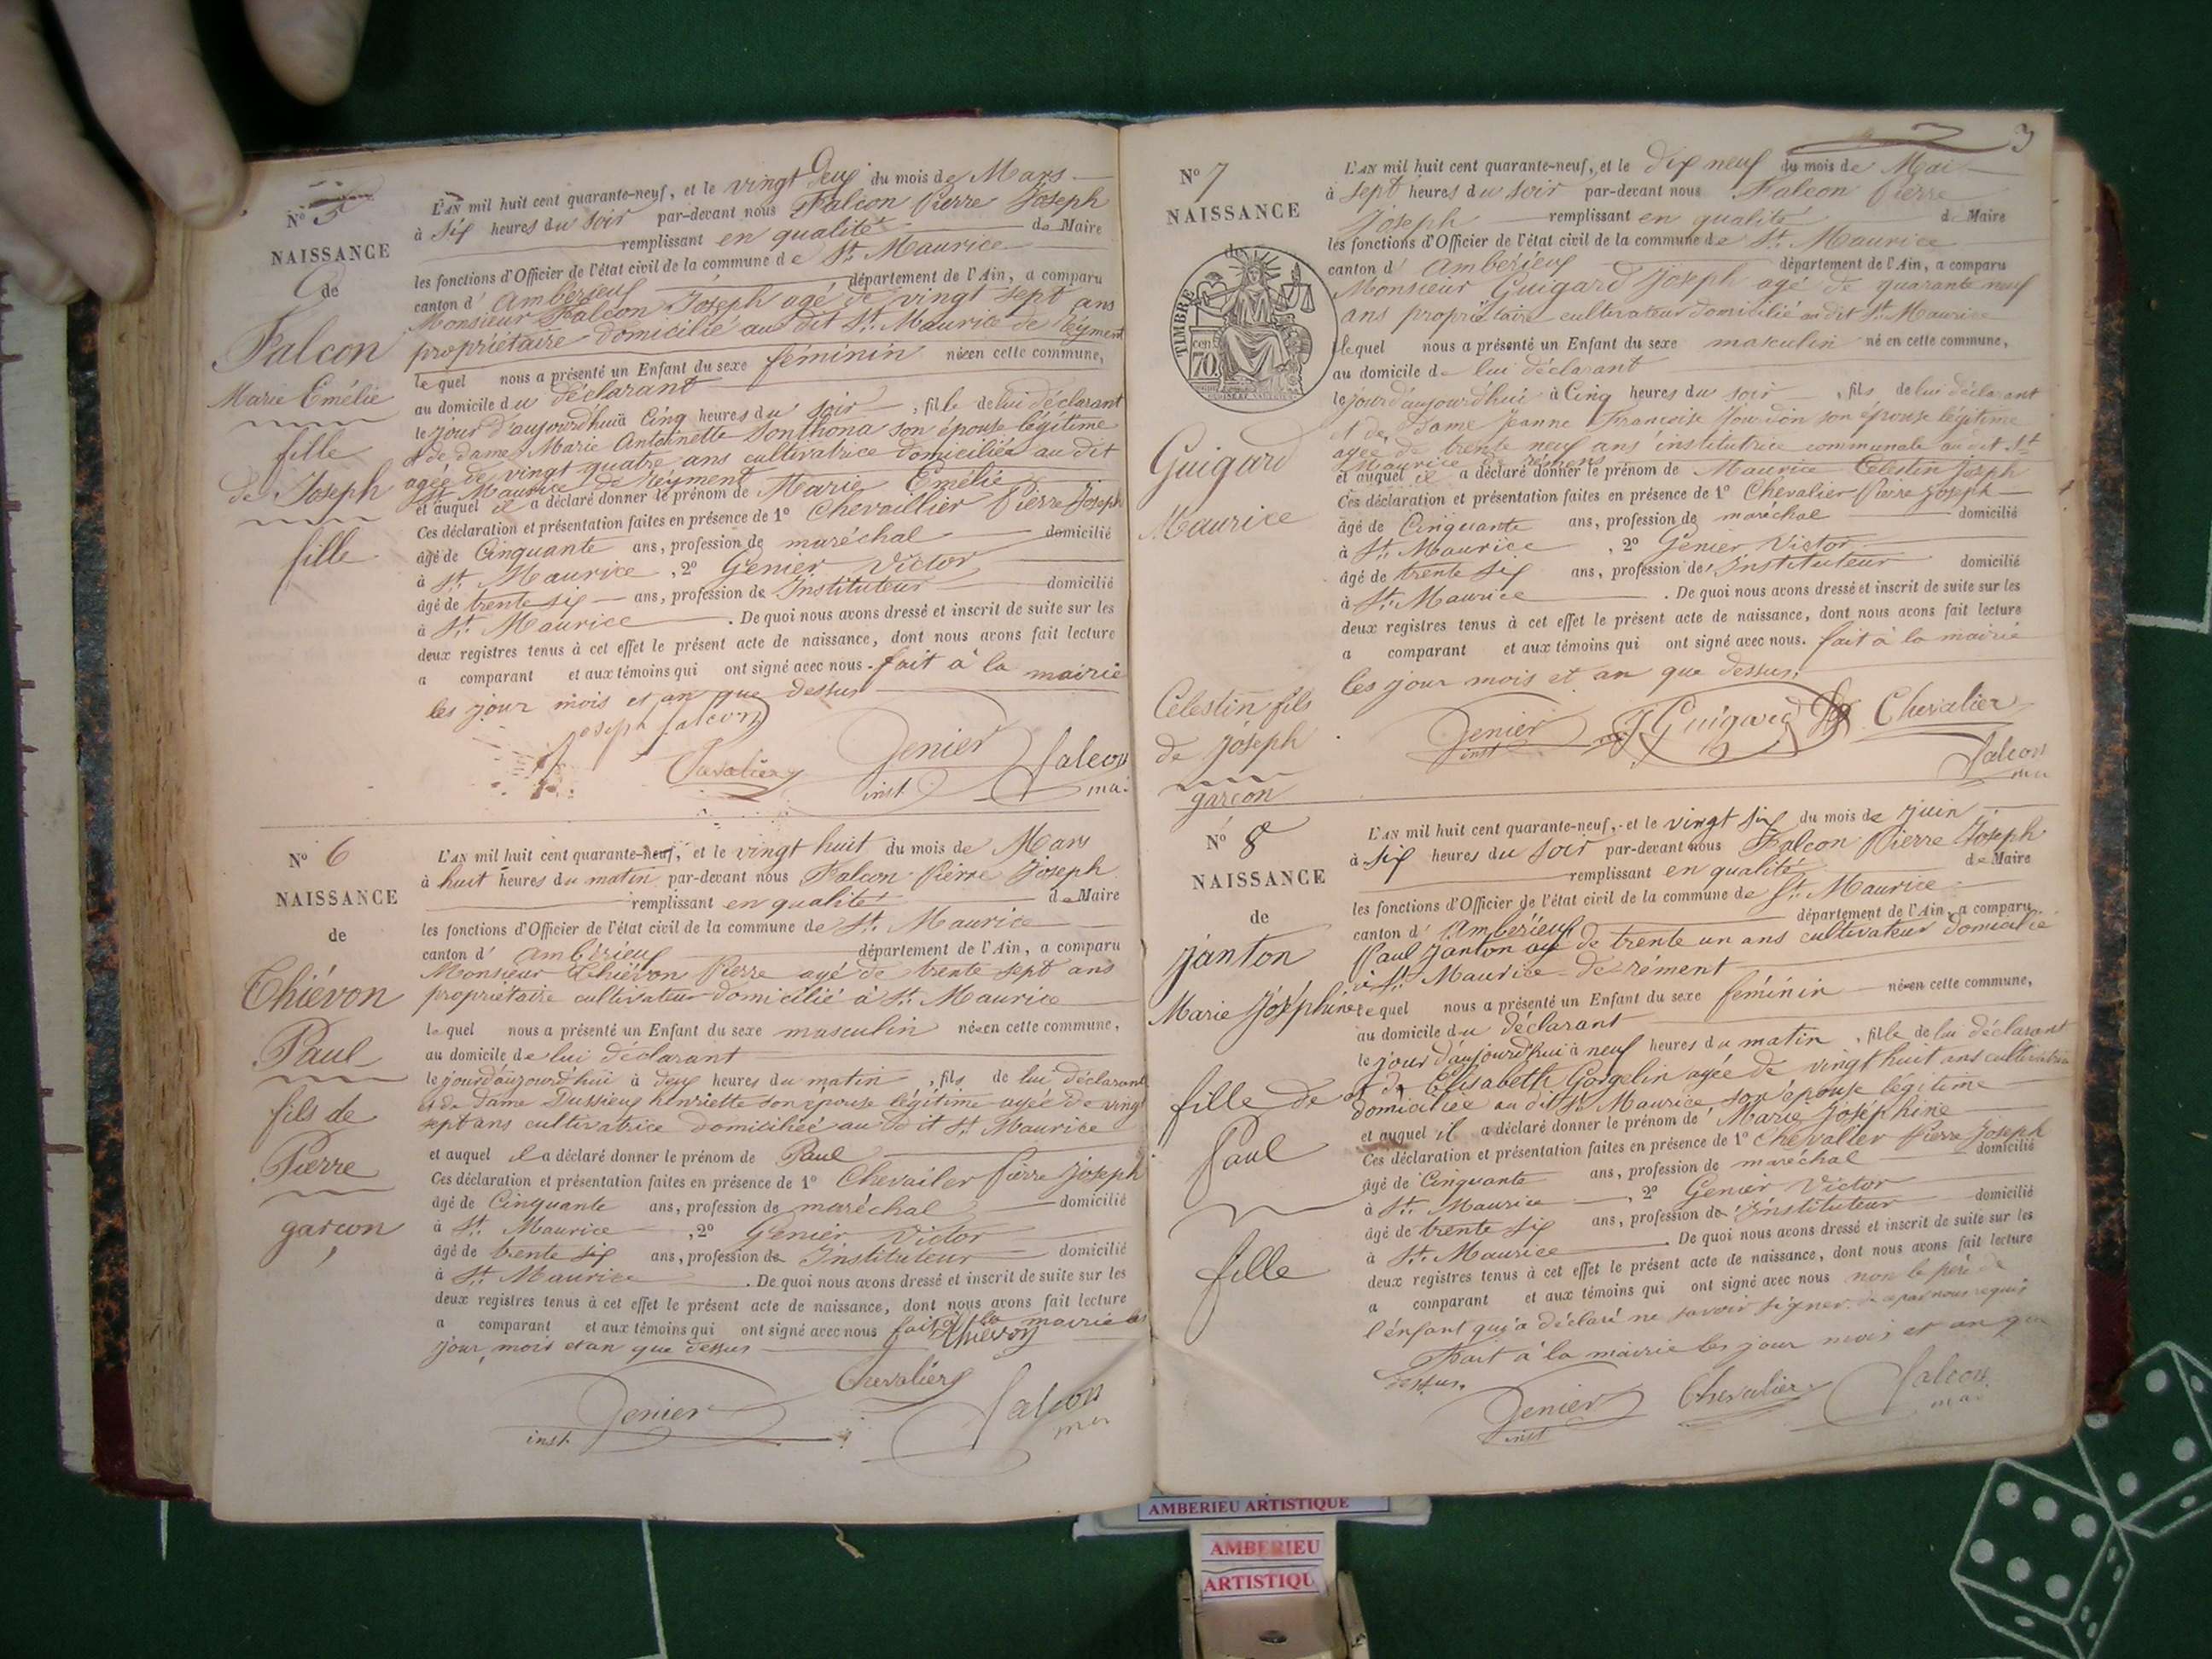 N° 5
NAISSANCE
de
Falcon
Marie Emélie
fille
de Joseph
fille
L'AN mil huit cent quarante-neuf, et le vingt deux du mois de Mars
à six heures du soir par-devant nous Falcon Pierre Joseph
remplissant en qualité de Maire
les fonctions d'Officier de l'état civil de la commune de St. Maurice
canton d' Ambérieux département de l'Ain, a comparu
Monsieur Falcon Joseph agé de vingt sept ans
propriétaire domicilié au dit St. Maurice de Réyment
lequel nous a présenté un Enfant du sexe féminin né en cette commune,
au domicile du déclarant
le jour d'aujourd'hui à Cinq heures du soir, fille de lui déclarant
et de dame Marie Antoinette Sonthona son épouse légitime
agée de vingt quatre ans cultivatrice domiciliée au dit
St. Maurice de Réyment
et auquel il a déclaré donner le prénom de Marie Emélie
Ces déclaration et présentation faites en présence de 1° Chevallier Pierre Joseph
âgé de Cinquante ans, profession de maréchal domicilié
à St. Maurice, 2° Genier Victor
âgé de trente six ans, profession de Instituteur domicilié
à St. Maurice. De quoi nous avons dressé et inscrit de suite sur les
deux registres tenus à cet effet le présent acte de naissance, dont nous avons fait lecture
a comparant et aux témoins qui ont signé avec nous. fait à la mairie
les jour mois et an que dessus
Joseph falcon
Chevalier
Genier
inst
falcon
ma.
N° 6
NAISSANCE
de
Thiévon
Paul
fils de
Pierre
garcon
L'AN mil huit cent quarante-neuf, et le vingt huit du mois de Mars
à huit heures du matin par-devant nous Falcon Pierre Joseph
remplissant en qualité de Maire
les fonctions d'Officier de l'état civil de la commune de St. Maurice
canton d' Ambérieux département de l'Ain, a comparu
Monsieur Thiévon Pierre agé de trente sept ans
propriétaire cultivateur domicilié à St. Maurice
lequel nous a présenté un Enfant du sexe masculin né en cette commune,
au domicile de lui déclarant
le jour d'aujourd'hui à deux heures du matin, fils de lui déclarant
et de dame Dussieux henriette son épouse légitime agée de vingt
sept ans cultivatrice domiciliée au dit St. Maurice
et auquel il a déclaré donner le prénom de Paul
Ces déclaration et présentation faites en présence de 1° Chevailer Pierre Joseph
âgé de Cinquante ans, profession de maréchal domicilié
à St. Maurice, 2° Genier Victor
âgé de trente six ans, profession de Instituteur domicilié
à St. Maurice. De quoi nous avons dressé et inscrit de suite sur les
deux registres tenus à cet effet le présent acte de naissance, dont nous avons fait lecture
a comparant et aux témoins qui ont signé avec nous fait à la mairie les
jour, mois et an que dessus
Thiévon
Chevalier
Genier
inst
falcon
3
N° 7
NAISSANCE
de
TIMBRE
cen
70.
Guigard
Maurice
Célestin fils
de Joseph
garçon
L'AN mil huit cent quarante-neuf, et le dix neuf du mois de Mai
à sept heures du soir par-devant nous Falcon Pierre
Joseph remplissant en qualité de Maire
les fonctions d'Officier de l'état civil de la commune de St. Maurice
canton d' Ambérieux département de l'Ain, a comparu
Monsieur Guigard Joseph agé de quarante neuf
ans propriétaire cultivateur domicilié au dit St. Maurice
lequel nous a présenté un Enfant du sexe masculin né en cette commune,
au domicile de lui déclarant
le jour d'aujourd'hui à Cinq heures du soir, fils de lui déclarant
et de dame Jeanne Francoise Jourdon son épouse légitime
agée de trente neuf ans institutrice communale au dit St
Maurice de rémens
et auquel il a déclaré donner le prénom de Maurice Célestin Joseph
Ces déclaration et présentation faites en présence de 1° Chevalier Pierre Joseph
âgé de Cinquante ans, profession de maréchal domicilié
à St. Maurice, 2° Genier Victor
âgé de trente six ans, profession de Instituteur domicilié
à St. Maurice. De quoi nous avons dressé et inscrit de suite sur les
deux registres tenus à cet effet le présent acte de naissance, dont nous avons fait lecture
a comparant et aux témoins qui ont signé avec nous. fait à la mairie
les jour mois et an que dessus.
Genier
inst
J Guigard
Chevalier
falcon
ma
N° 8
NAISSANCE
de
Janton
Marie Joséphine
fille de
Paul
fille
L'AN mil huit cent quarante-neuf, et le vingt six du mois de juin
à six heures du soir par-devant nous Falcon Pierre Joseph
remplissant en qualité de Maire
les fonctions d'Officier de l'état civil de la commune de St. Maurice
canton d' Ambérieux département de l'Ain, a comparu
Paul Janton agé de trente un ans cultivateur domicilié
à St. Maurice de rément
lequel nous a présenté un Enfant du sexe féminin né en cette commune,
au domicile du déclarant
le jour d'aujourd'hui à neuf heures du matin, fille de lui déclarant
et de Elisabeth Gorgelin agée de vingt huit ans cultivatrice
domiciliée au dit St. Maurice son épouse légitime
et auquel il a déclaré donner le prénom de Marie Joséphine
Ces déclaration et présentation faites en présence de 1° Chevalier Pierre Joseph
âgé de Cinquante ans, profession de maréchal domicilié
à St. Maurice, 2° Genier Victor
âgé de trente six ans, profession de Instituteur domicilié
à St. Maurice. De quoi nous avons dressé et inscrit de suite sur les
deux registres tenus à cet effet le présent acte de naissance, dont nous avons fait lecture
a comparant et aux témoins qui ont signé avec nous non le père de
l'enfant qui a déclaré ne savoir signer de ce par nous requis
Fait à la mairie les jour mois et an que
dessus.
Genier
inst
Chevalier
falcon
ma
AMBERIEU ARTISTIQUE
AMBERIEU
ARTISTIQU